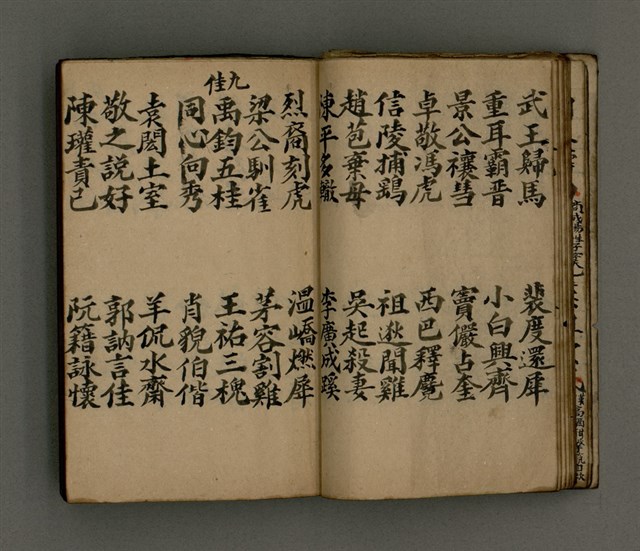 武王歸馬 裴度還犀
重耳霸晋 小白興齊
景公禳彗 竇儼占奎
卓敬馮虎 西巴釋麑
信陵捕鷂 祖逖聞雞
趙苞棄母 吳起殺妻
陳平多轍 李廣成蹊
烈裔刻虎 溫嶠燃犀
梁公馴雀 茅容割雞
九佳
禹鈞五桂 王祐三槐
同心向秀 肖貌伯偕
袁閎土室 羊侃水齋
敬之說好 郭訥言佳
陳瓘責己 阮籍詠懷